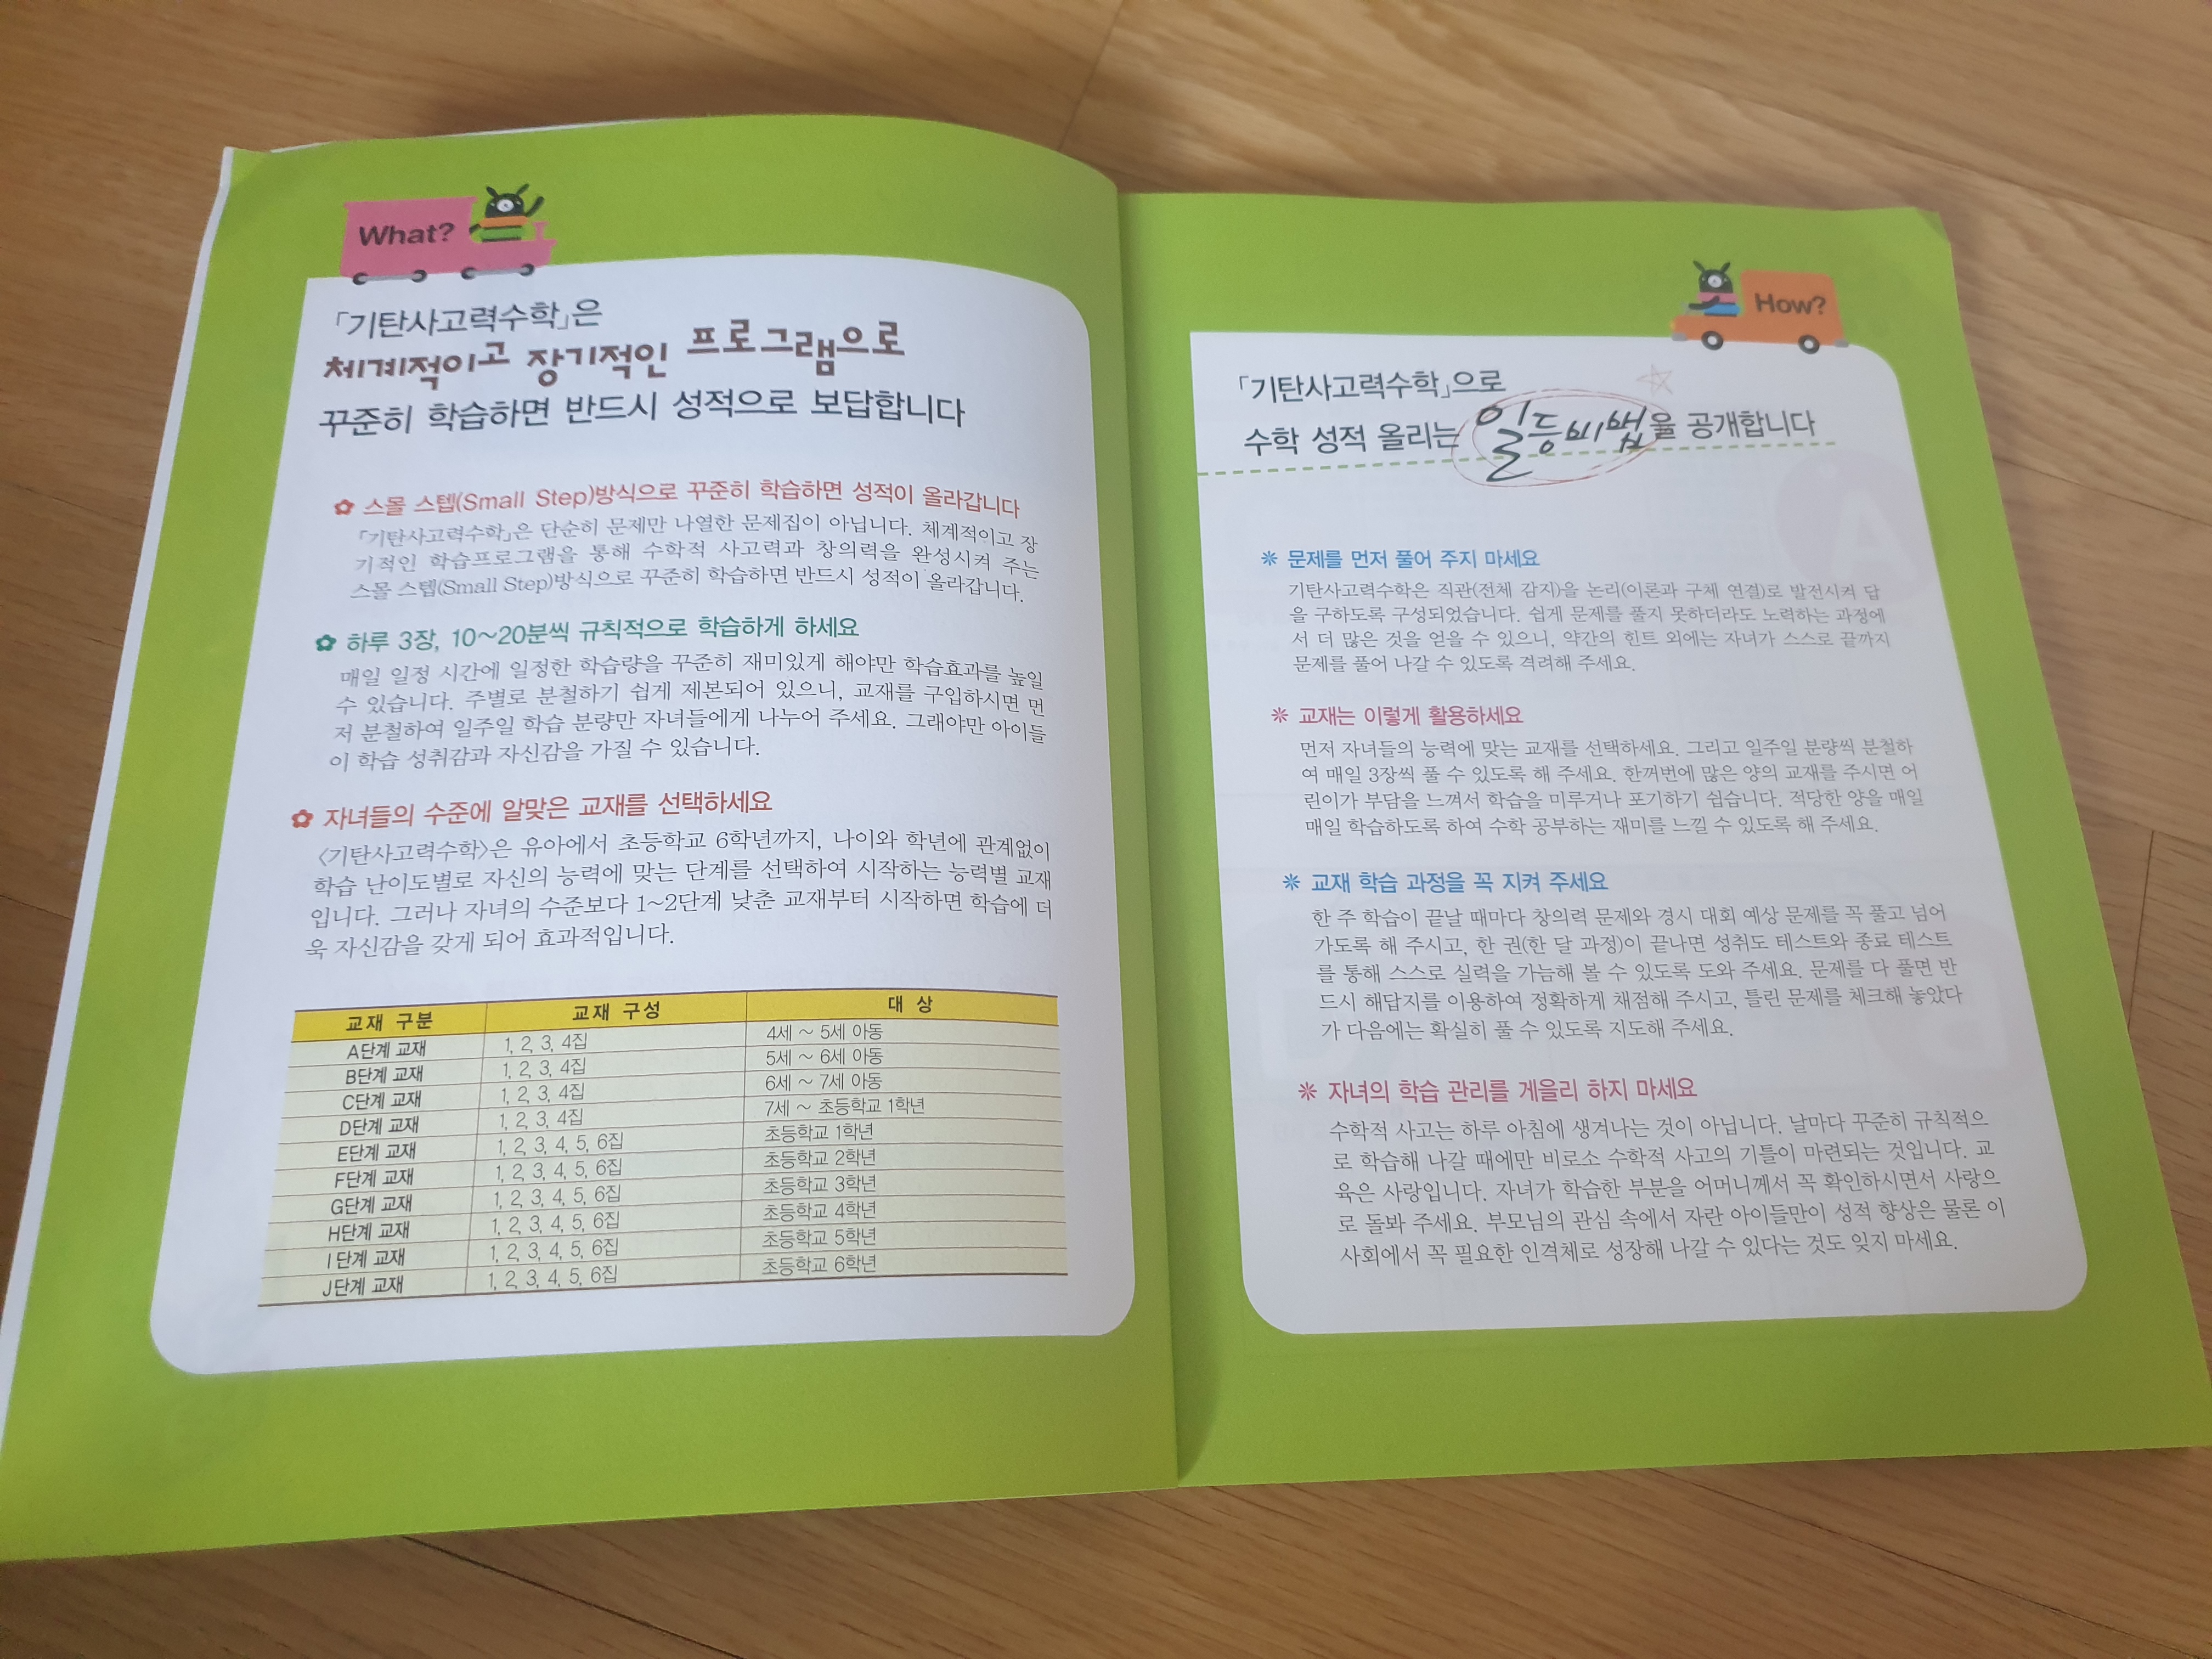 What?
「기탄사고력수학」은
체계적이고 장기적인 프로그램으로
꾸준히 학습하면 반드시 성적으로 보답합니다
✿ 스몰 스텝(Small Step)방식으로 꾸준히 학습하면 성적이 올라갑니다
「기탄사고력수학」은 단순히 문제만 나열한 문제집이 아닙니다. 체계적이고 장
기적인 학습프로그램을 통해 수학적 사고력과 창의력을 완성시켜 주는
스몰 스텝(Small Step)방식으로 꾸준히 학습하면 반드시 성적이 올라갑니다.
✿ 하루 3장, 10~20분씩 규칙적으로 학습하게 하세요
매일 일정 시간에 일정한 학습량을 꾸준히 재미있게 해야만 학습효과를 높일
수 있습니다. 주별로 분철하기 쉽게 제본되어 있으니, 교재를 구입하시면 먼
저 분철하여 일주일 학습 분량만 자녀들에게 나누어 주세요. 그래야만 아이들
이 학습 성취감과 자신감을 가질 수 있습니다.
✿ 자녀들의 수준에 알맞은 교재를 선택하세요
〈기탄사고력수학〉은 유아에서 초등학교 6학년까지, 나이와 학년에 관계없이
학습 난이도별로 자신의 능력에 맞는 단계를 선택하여 시작하는 능력별 교재
입니다. 그러나 자녀의 수준보다 1~2단계 낮춘 교재부터 시작하면 학습에 더
욱 자신감을 갖게 되어 효과적입니다.
교재 구분 교재 구성 대 상
A단계 교재 1, 2, 3, 4집 4세 ~ 5세 아동
B단계 교재 1, 2, 3, 4집 5세 ~ 6세 아동
C단계 교재 1, 2, 3, 4집 6세 ~ 7세 아동
D단계 교재 1, 2, 3, 4집 7세 ~ 초등학교 1학년
E단계 교재 1, 2, 3, 4, 5, 6집 초등학교 1학년
F단계 교재 1, 2, 3, 4, 5, 6집 초등학교 2학년
G단계 교재 1, 2, 3, 4, 5, 6집 초등학교 3학년
H단계 교재 1, 2, 3, 4, 5, 6집 초등학교 4학년
I단계 교재 1, 2, 3, 4, 5, 6집 초등학교 5학년
J단계 교재 1, 2, 3, 4, 5, 6집 초등학교 6학년
How?
「기탄사고력수학」으로
수학 성적 올리는 일등비법을 공개합니다
✻ 문제를 먼저 풀어 주지 마세요
기탄사고력수학은 직관(전체 감지)을 논리(이론과 구체 연결)로 발전시켜 답
을 구하도록 구성되었습니다. 쉽게 문제를 풀지 못하더라도 노력하는 과정에
서 더 많은 것을 얻을 수 있으니, 약간의 힌트 외에는 자녀가 스스로 끝까지
문제를 풀어 나갈 수 있도록 격려해 주세요.
✻ 교재는 이렇게 활용하세요
먼저 자녀들의 능력에 맞는 교재를 선택하세요. 그리고 일주일 분량씩 분철하
여 매일 3장씩 풀 수 있도록 해 주세요. 한꺼번에 많은 양의 교재를 주시면 어
린이가 부담을 느껴서 학습을 미루거나 포기하기 쉽습니다. 적당한 양을 매일
매일 학습하도록 하여 수학 공부하는 재미를 느낄 수 있도록 해 주세요.
✻ 교재 학습 과정을 꼭 지켜 주세요
한 주 학습이 끝날 때마다 창의력 문제와 경시 대회 예상 문제를 꼭 풀고 넘어
가도록 해 주시고, 한 권(한 달 과정)이 끝나면 성취도 테스트와 종료 테스트
를 통해 스스로 실력을 가늠해 볼 수 있도록 도와 주세요. 문제를 다 풀면 반
드시 해답지를 이용하여 정확하게 채점해 주시고, 틀린 문제를 체크해 놓았다
가 다음에는 확실히 풀 수 있도록 지도해 주세요.
✻ 자녀의 학습 관리를 게을리 하지 마세요
수학적 사고는 하루 아침에 생겨나는 것이 아닙니다. 날마다 꾸준히 규칙적으
로 학습해 나갈 때에만 비로소 수학적 사고의 기틀이 마련되는 것입니다. 교
육은 사랑입니다. 자녀가 학습한 부분을 어머니께서 꼭 확인하시면서 사랑으
로 돌봐 주세요. 부모님의 관심 속에서 자란 아이들만이 성적 향상은 물론 이
사회에서 꼭 필요한 인격체로 성장해 나갈 수 있다는 것도 잊지 마세요.